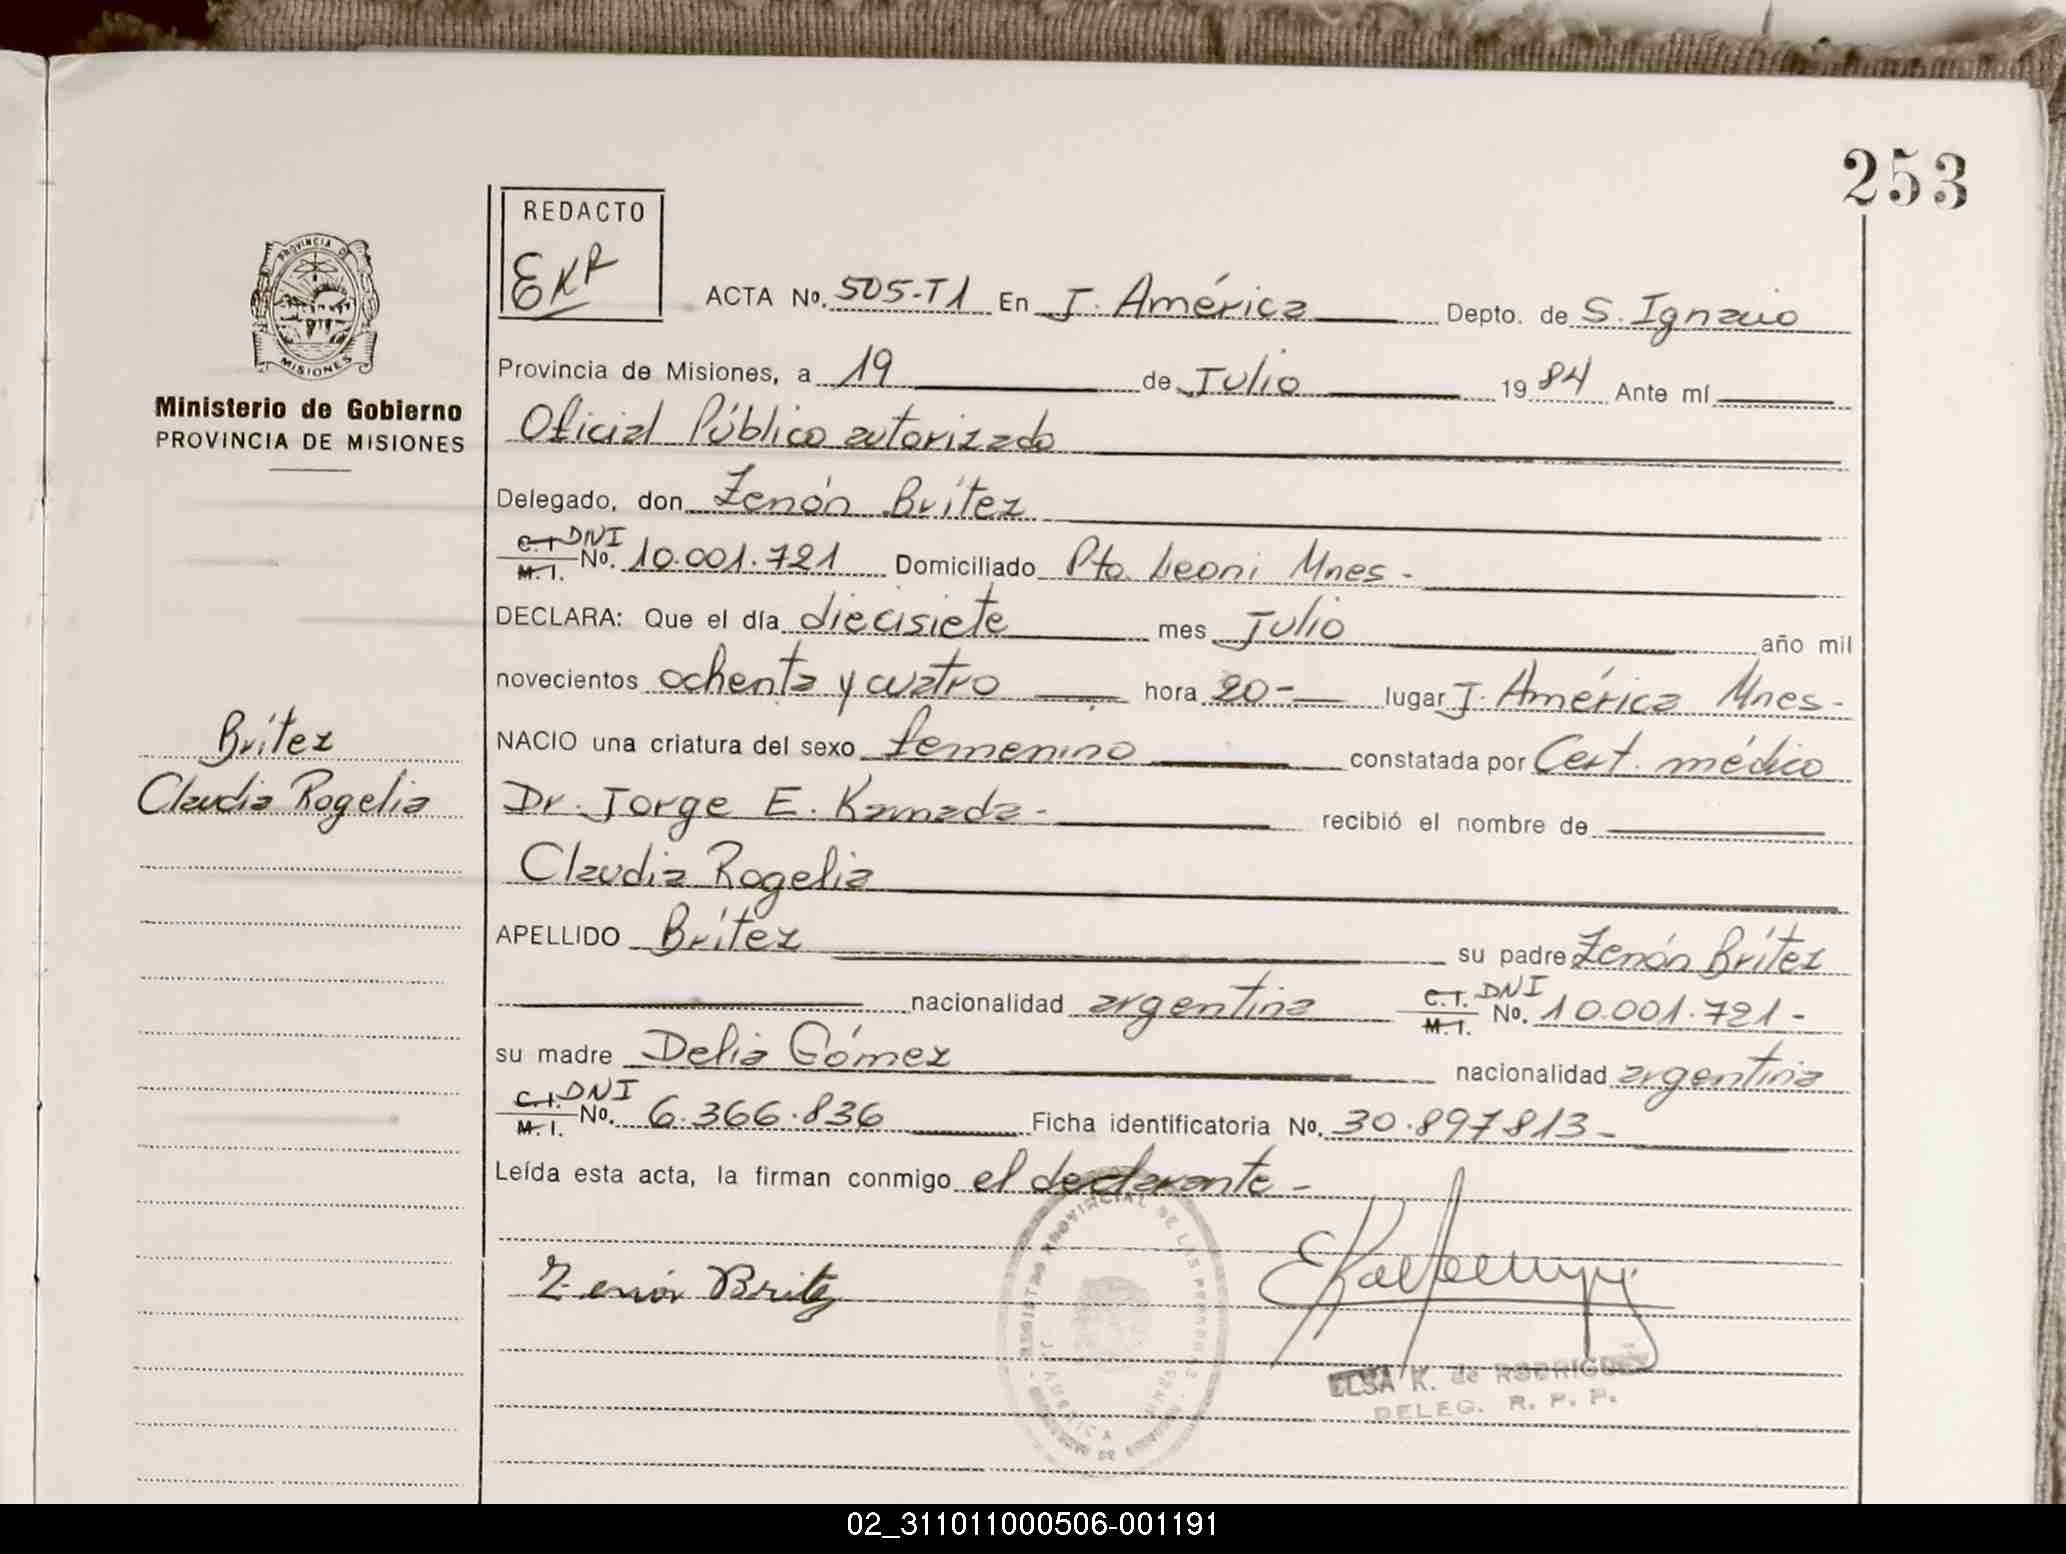 253
REDACTO
EKR
PROVINCIA DE
MISIONES
Ministerio de Gobierno
PROVINCIA DE MISIONES
ACTA No. 505-T1 En J. América Depto. de S. Ignacio
Provincia de Misiones, a 19 de Julio 1984 Ante mí
Oficial Público autorizado
Delegado, don Zenón Brítez
C.I. M.I. DNI No. 10.001.721 Domiciliado Pto. Leoni Mnes -
DECLARA: Que el día diecisiete mes Julio año mil
novecientos ochenta y cuatro hora 20 - lugar J. América Mnes -
NACIO una criatura del sexo femenino constatada por Cert. médico
Dr. Jorge E. Kamada - recibió el nombre de
Claudia Rogelia
APELLIDO Brítez su padre Zenón Brítez
nacionalidad argentina C.I. M.I. DNI No. 10.001.721 -
su madre Delia Gómez nacionalidad argentina
C.I. M.I. DNI No. 6.366.836 Ficha identificatoria No. 30.897813 -
Leída esta acta, la firman conmigo el declarante -
Brítez
Claudia Rogelia
Zenón Britez
REGISTRO PROVINCIAL DE LAS PERSONAS
J. AMERICA
ELSA K. de RODRIGUEZ
DELEG. R. P. P.
02_311011000506-001191